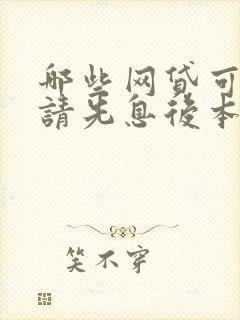 哪些网贷可
請先息後本
笑不穿